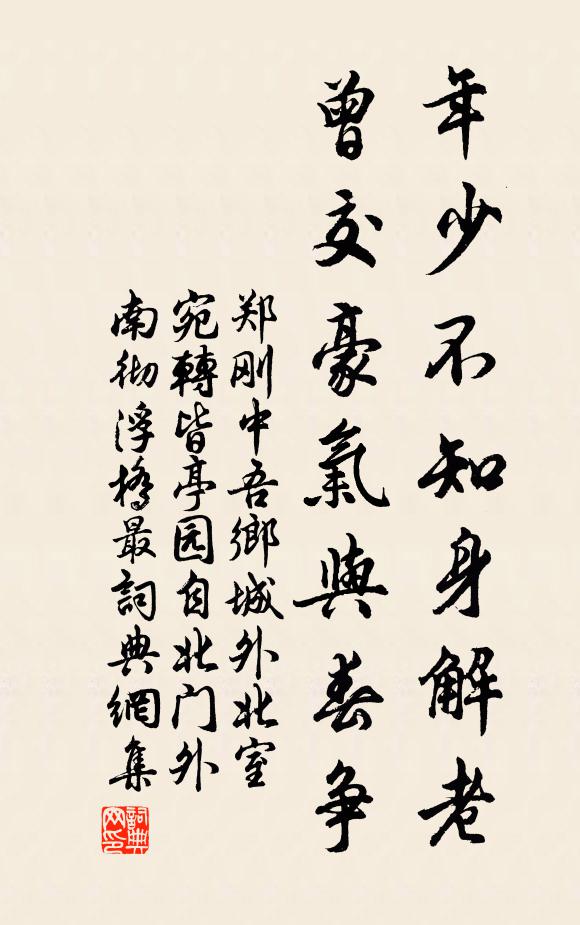 年少不知身解老
曾交豪氣與春争
郑刚中吾鄉城外北室
宛轉皆亭园自北门外
南彻浮橋最詞典網集
詞典网印